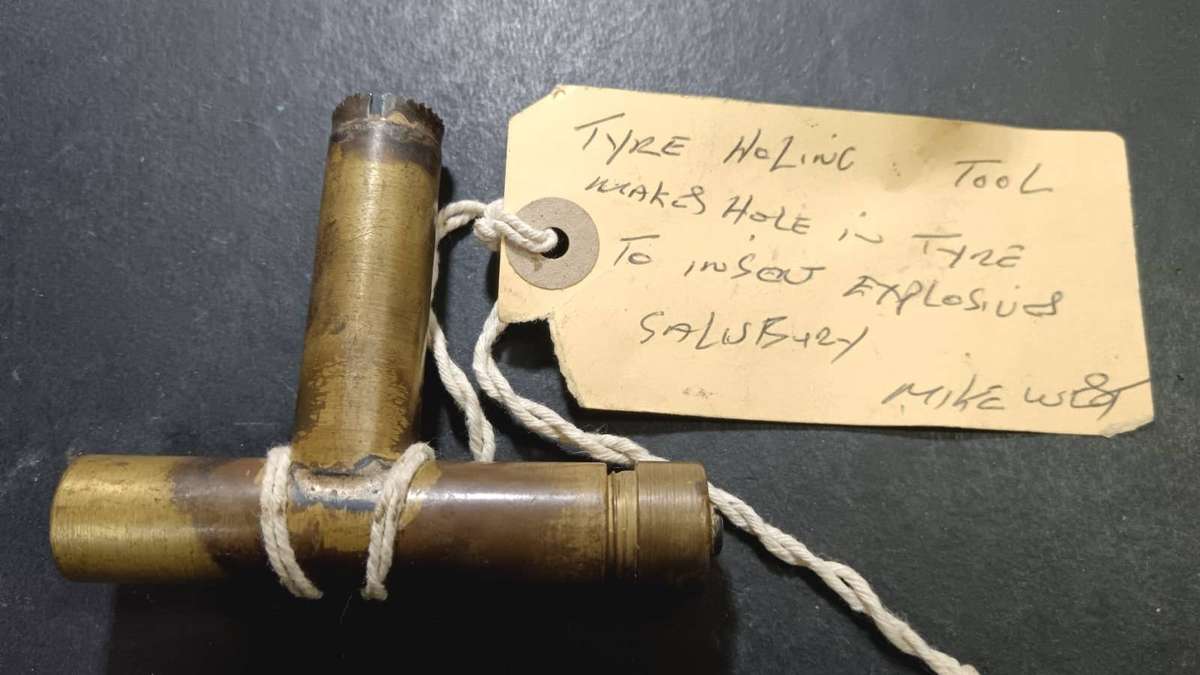 TYRE HOLING TOOL
MAKES HOLE IN TYRE
TO INSERT EXPLOSIVES
SALISBURY
MIKE WEST